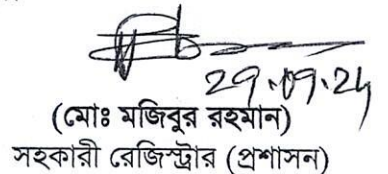 29.09.24
(মোঃ মজিবুর রহমান)
সহকারী রেজিস্ট্রার (প্রশাসন)